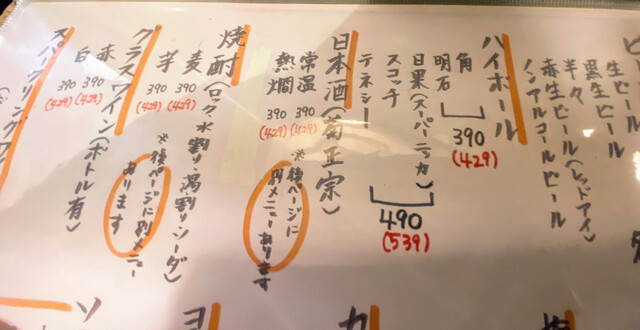 生ビール
黒生ビール
半々
赤生ビール(レッドアイ)
ノンアルコールビール
ハイボール
角
明石
390
(429)
日果(スーパーニッカ)
スコッチ
テネシー
490
(539)
日本酒(菊正宗)
常温 390
(429)
熱燗 390
(429)
※後ページに
別メニューあります
焼酎(ロック、水割り、湯割り、ソーダ)
麦 390
(429)
芋 390
(429)
※後ページに別メニュー
あります
グラスワイン(ボトル有)
赤 390
(429)
白 390
(429)
スパークリングワ